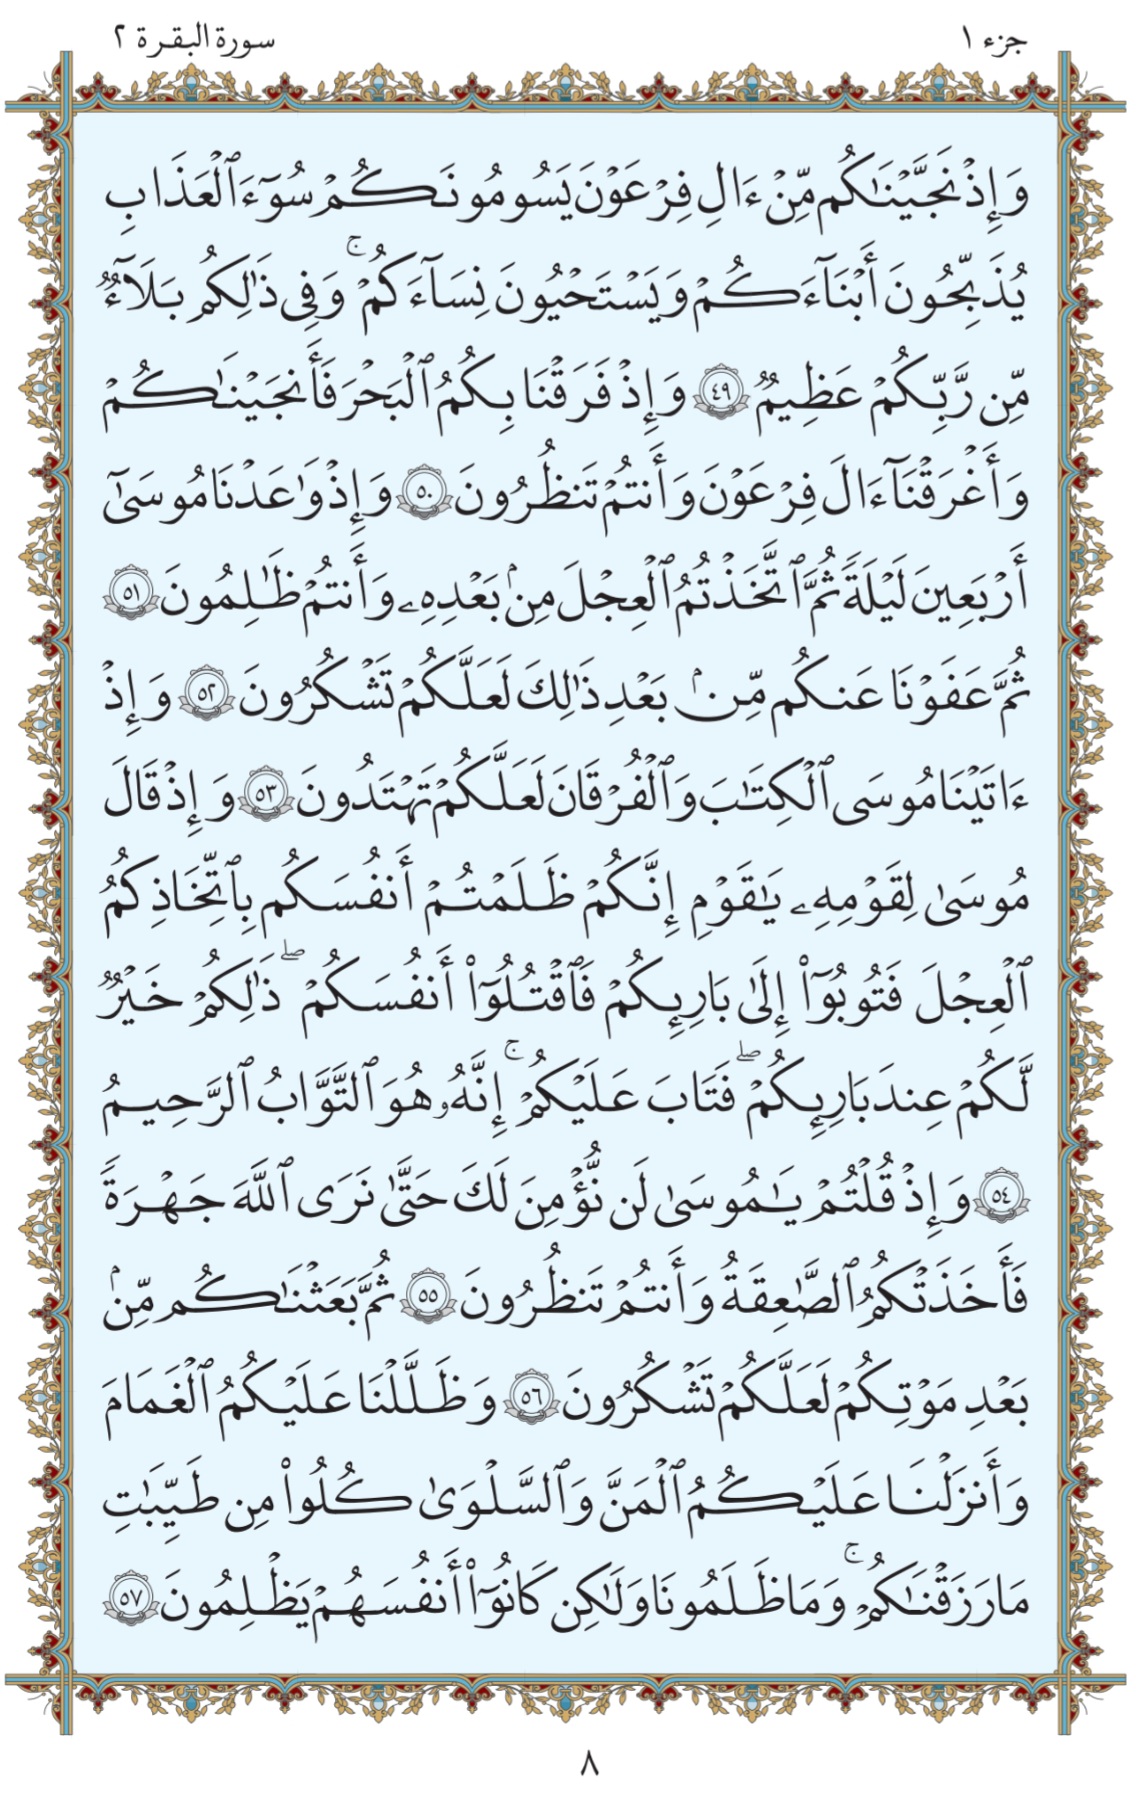 جزء ١
سورة البقرة ٢
وَإِذْ نَجَّيْنَـٰكُم مِّنْ ءَالِ فِرْعَوْنَ يَسُومُونَكُمْ سُوٓءَ ٱلْعَذَابِ
يُذَبِّحُونَ أَبْنَآءَكُمْ وَيَسْتَحْيُونَ نِسَآءَكُمْ ۚ وَفِى ذَٰلِكُم بَلَآءٌ
مِّن رَّبِّكُمْ عَظِيمٌ ٤٩ وَإِذْ فَرَقْنَا بِكُمُ ٱلْبَحْرَ فَأَنجَيْنَـٰكُمْ
وَأَغْرَقْنَآ ءَالَ فِرْعَوْنَ وَأَنتُمْ تَنظُرُونَ ٥٠ وَإِذْ وَٰعَدْنَا مُوسَىٰٓ
أَرْبَعِينَ لَيْلَةً ثُمَّ ٱتَّخَذْتُمُ ٱلْعِجْلَ مِنۢ بَعْدِهِۦ وَأَنتُمْ ظَـٰلِمُونَ ٥١
ثُمَّ عَفَوْنَا عَنكُم مِّنۢ بَعْدِ ذَٰلِكَ لَعَلَّكُمْ تَشْكُرُونَ ٥٢ وَإِذْ
ءَاتَيْنَا مُوسَى ٱلْكِتَـٰبَ وَٱلْفُرْقَانَ لَعَلَّكُمْ تَهْتَدُونَ ٥٣ وَإِذْ قَالَ
مُوسَىٰ لِقَوْمِهِۦ يَـٰقَوْمِ إِنَّكُمْ ظَلَمْتُمْ أَنفُسَكُم بِٱتِّخَاذِكُمُ
ٱلْعِجْلَ فَتُوبُوٓا۟ إِلَىٰ بَارِئِكُمْ فَٱقْتُلُوٓا۟ أَنفُسَكُمْ ۖ ذَٰلِكُمْ خَيْرٌ
لَّكُمْ عِندَ بَارِئِكُمْ ۖ فَتَابَ عَلَيْكُمْ ۚ إِنَّهُۥ هُوَ ٱلتَّوَّابُ ٱلرَّحِيمُ
٥٤ وَإِذْ قُلْتُمْ يَـٰمُوسَىٰ لَن نُّؤْمِنَ لَكَ حَتَّىٰ نَرَى ٱللَّهَ جَهْرَةً
فَأَخَذَتْكُمُ ٱلصَّـٰعِقَةُ وَأَنتُمْ تَنظُرُونَ ٥٥ ثُمَّ بَعَثْنَـٰكُم مِّنۢ
بَعْدِ مَوْتِكُمْ لَعَلَّكُمْ تَشْكُرُونَ ٥٦ وَظَلَّلْنَا عَلَيْكُمُ ٱلْغَمَامَ
وَأَنزَلْنَا عَلَيْكُمُ ٱلْمَنَّ وَٱلسَّلْوَىٰ كُلُوا۟ مِن طَيِّبَـٰتِ
مَا رَزَقْنَـٰكُمْ ۚ وَمَا ظَلَمُونَا وَلَـٰكِن كَانُوٓا۟ أَنفُسَهُمْ يَظْلِمُونَ ٥٧
٨